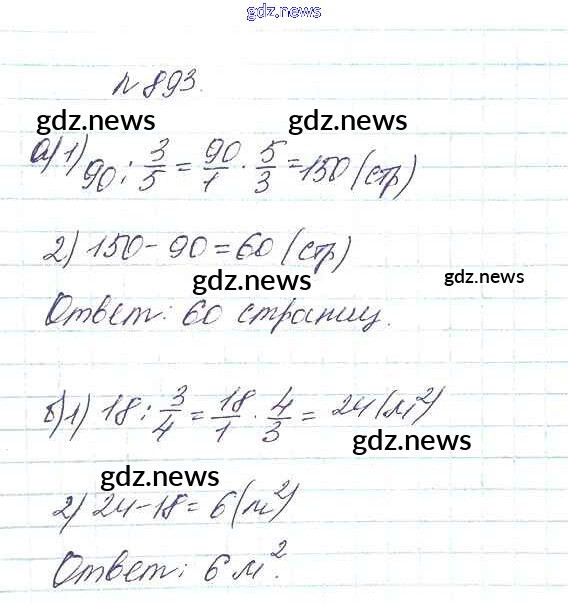 gdz.news
№893.
gdz.news gdz.news
а) 1) 90 : 3/5 = 90/1 · 5/3 = 150 (стр)
2) 150 - 90 = 60 (стр)
gdz.news gdz.news
Ответ: 60 страниц.
б) 1) 18 : 3/4 = 18/1 · 4/3 = 24 (м²)
gdz.news
gdz.news
2) 24 - 18 = 6 (м²)
Ответ: 6 м².
gdz.news